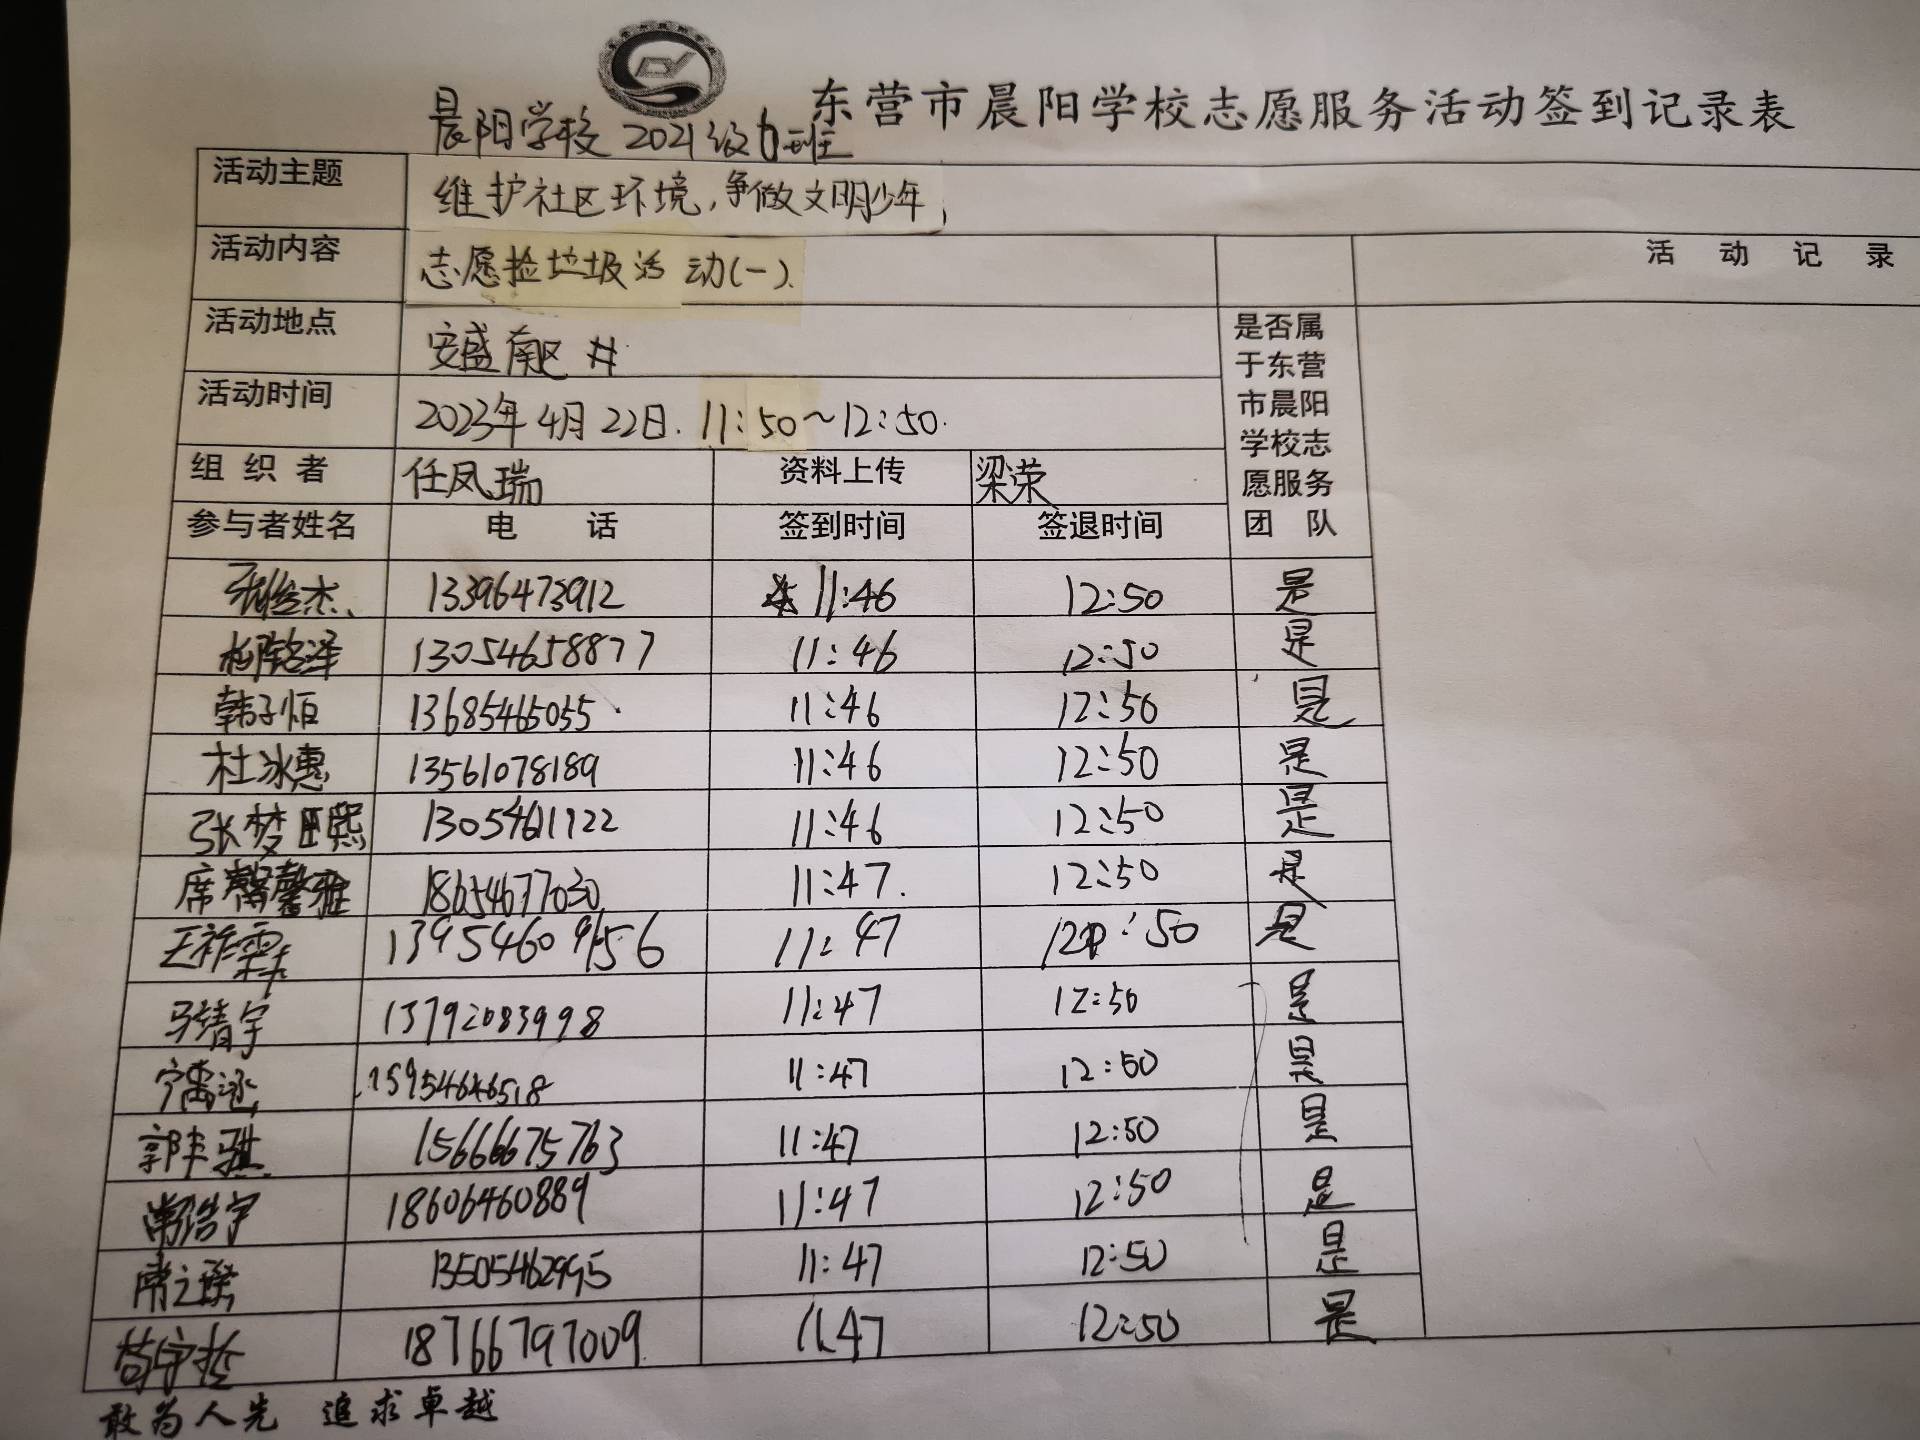 东营市晨阳学校志愿服务活动签到记录表
晨阳学校 2021级 班
活动主题 维护社区环境,争做文明少年,
活动内容 志愿捡垃圾活动(一). 活 动 记 录
活动地点 安盛南区
活动时间 2023年4月22日. 11:50~12:50.
是否属
于东营
市晨阳
学校志
愿服务
团 队
组 织 者 任凤瑞 资料上传 梁荣
参与者姓名 电 话 签到时间 签退时间
杰 13396473912 11:46 12:50 是
铭泽 13054658877 11:46 12:50 是
韩子恒 13685465055 11:46 12:50 是
杜冰惠 13561078189 11:46 12:50 是
张梦熙 13054611122 11:46 12:50 是
席馨雅 18654677030 11:47. 12:50 是
王祚霖 13954609156 11:47 12:50 是
马靖宇 13792083998 11:47 12:50 是
15954646518 11:47 12:50 是
郭丰骐 15666675763 11:47 12:50 是
浩宇 18606460889 11:47 12:50 是
13505462995 11:47 12:50 是
苟宇哲 18766797009 11:47 12:50 是
敢为人先 追求卓越